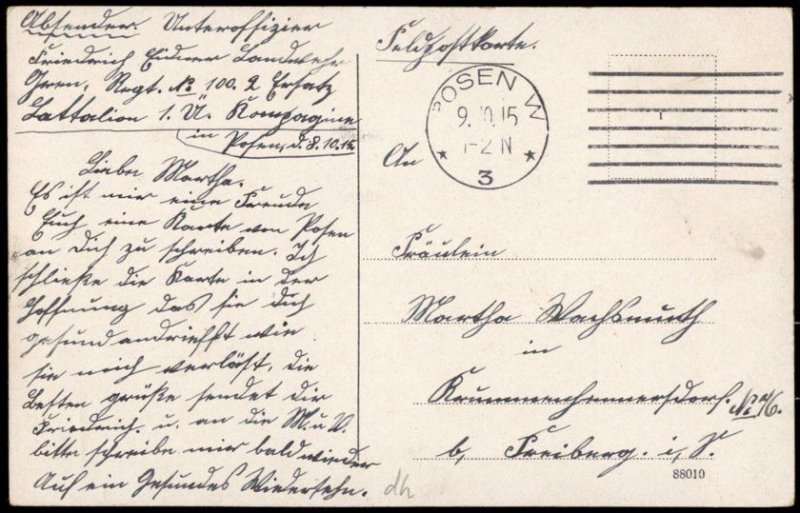 Absender. Unteroffizier
Friedrich Eidner Landwehr
Gren. Regt. № 100. 2 Ersatz
Battalion 1. Ü. Kompagnie
in Posen, d. 8.10.15
Liebe Martha.
Es ist mir eine Freude
Euch eine Karte von Posen
an Dich zu schreiben. Ich
schließe die Karte in der
Hoffnung das sie dich
gesund andriefft wie
sie mich verläst, die
Besten grüße sendet dir
Friedrich. u. an die M. u. V.
bitte schreibe mir bald wieder
Auf ein Gesundes Wiedersehn.
Feldpostkarte.
POSEN W
9.10.15
1-2 N
* 3 *
1
An
Fräulein
Martha Wachsmuth
in
Krummenhennersdorf.
b. Freiberg. i. S.
88010
dh